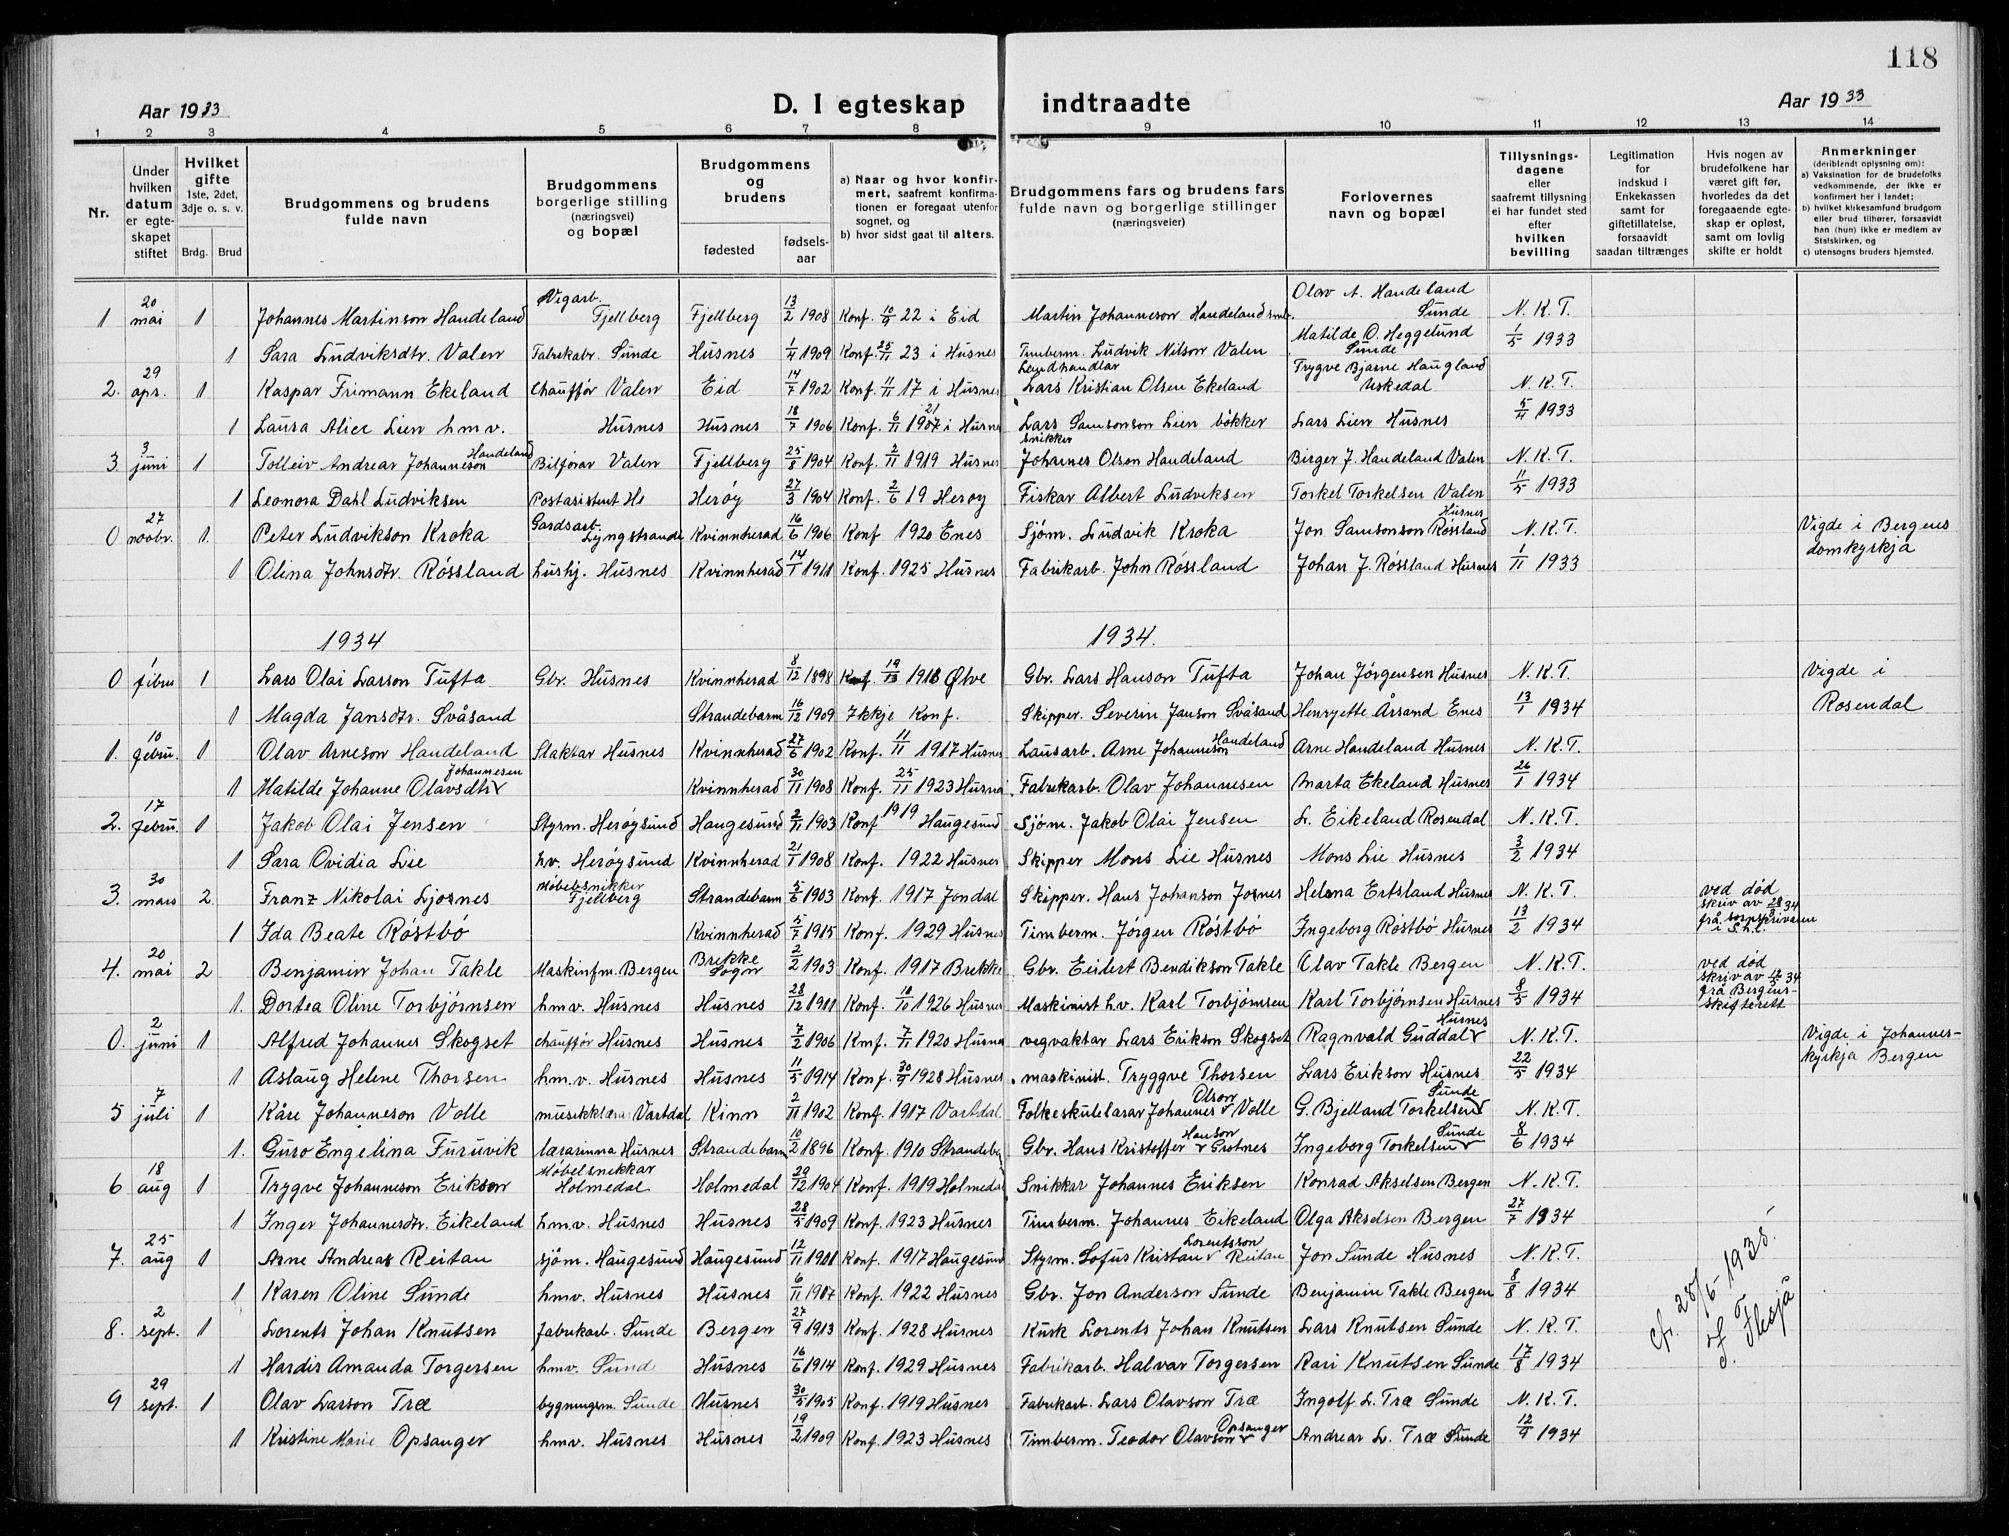 118
Aar 1933 D. I egteskap indtraadte Aar 1933
1 2 3 4 5 6 7 8 9 10 11 12 13 14
Nr.
Under hvilken datum er egte-skapet stiftet
Hvilket gifte 1ste, 2det, 3dje o. s. v.
Brdg. Brud
Brudgommens og brudens fulde navn
Brudgommens borgerlige stilling (næringsvei) og bopæl
Brudgommens og brudens
fødested fødsels-aar
a) Naar og hvor konfir-mert, saafremt konfirma-tionen er foregaat utenfor sognet, og
b) hvor sidst gaat til alters.
Brudgommens fars og brudens fars fulde navn og borgerlige stillinger (næringsveier)
Forlovernes navn og bopæl
Tillysnings-dagene eller saafremt tillysning ei har fundet sted efter hvilken bevilling
Legitimation for indskud i Enkekassen samt for giftetillatelse, forsaavidt saadan tiltrænges
Hvis nogen av brudefolkene har været gift før, hvorledes da det foregaaende egte-skap er opløst, samt om lovlig skifte er holdt
Anmerkninger (deriblandt oplysning om):
a) Vaksination for de brudefolks vedkommende, der ikke er konfirmert her i landet;
b) hvilket kirkesamfund brudgom eller brud tilhører, forsaavidt han (hun) ikke er medlem av Statskirken, og
c) utensogns bruders hjemsted.
1 20 mai 1 Johannes Martinson Handeland Vegarb. Fjellberg Fjellberg 13/2 1908 Konf. 10/9 22 i Eid Martin Johanneson Handeland smb. Olav A. Handeland Sunde N. K. T.
1 Sara Ludviksdtr. Valen Fabrikabr. Sunde Husnes 1/4 1909 Konf. 25/11 23 i Husnes Timberm. Ludvik Nilson Valen Matilde O. Heggelund Sunde 1/5 1933
2. 29 apr. 1 Kaspar Frimann Ekeland Chauffør Valen Eid 14/7 1902 Konf. 11/11 17 i Husnes Landhandlar Lars Kristian Olsen Ekeland Trygve Bjarne Haugland Uskedal N. K. T.
1 Laura Alice Lien hmv. Husnes Husnes 18/7 1906 Konf. 6/11 1921 i Husnes Lars Samsonson Lien bøkker Lars Lien Husnes 5/4 1933
3. 3 juni 1 Tolleiv Andreas Johanneson Handeland Bilførar Valen Fjellberg 25/8 1904 Konf. 2/11 1919 Husnes snikker Johannes Olsen Handeland Birger J. Handeland Valen N. K. T.
1 Leonora Dahl Ludviksen Postasistent He Herøy 27/3 1904 Konf. 2/6 19 Herøy Fiskar Albert Ludviksen Torkel Torkelsen Valen 11/5 1933
0 27 novbr. 1. Peter Ludvikson Kroka Gardsarb. Lyngstrande Kvinnherad 16/6 1906 Konf 1920 Enes Sjøm. Ludvik Kroka Jon Samsonson Røssland Husnes N. K. T. Vigde i Bergens domkyrkja
1 Olina Johnsdtr. Røssland hushj. Husnes Kvinnherad 14/1 1911 Konf. 1925 Husnes Fabrikarb. John Røssland Johan J. Røssland Husnes 1/11 1933
1934 1934.
0 1 febru 1 Lars Olai Larson Tufta Gbr. Husnes Kvinnherad 8/12 1898 Konf. 1913 Ølve Gbr. Lars Hanson Tufta Johan Jørgensen Husnes N. K. T. Vigde i Rosendal
1 Magda Jansdtr. Svåsand Strandebarm 16/12 1909 Ikkje Konf. Skipper. Severin Janson Svåsand Henryette Årsand Enes 13/1 1934
1. 10 febru. 1 Olav Arneson Handeland Staktar Husnes Kvinnherad 27/6 1902 Konf. 11/11 1917 Husnes Lausarb. Arne Johanneson Handeland Arne Handeland Husnes N. K. T.
1 Matilde Johanne Olavsdtr Johannesen Kvinnherad 30/11 1908 Konf. 25/11 1923 Husnes Fabrikarb. Olav Johannesen Marta Ekeland Husnes 26/1 1934
2. 17 febru. 1 Jakob Olai Jensen Styrm. Herøysund Haugesund 2/11 1903 Konf 1919 Haugesund Sjøm. Jakob Olai Jensen L. Eikeland Rosendal N. K. T.
1 Sara Ovidia Lie hv. Herøysund Kvinnherad 21/1 1908 Konf. 1922 Husnes Skipper Mons Lie Husnes Mons Lie Husnes 3/2 1934
3. 30 mars 2 Franz Nikolai Ljosnes Møbelsnikker Fjellberg Strandebarm 5/6 1903 Konf. 1917 Jondal Skipper. Hans Johanson Josnes Helena Ertsland Husnes N. K. T. ved død skriv av 28/3 34 frå sorpskrivaren i S.h.l.
1 Ida Beate Røstbø Kvinnherad 5/7 1915 Konf. 1929 Husnes Timberm. Jørgen Røstbø Ingeborg Røstbø Husnes 13/2 1934
4. 20 mai 2 Benjamin Johan Takle Maskinfm. Bergen Brekke Sogn 2/2 1903 Konf. 1917 Brekke Gbr. Eidert Bendikson Takle Olav Takle Bergen N. K. T. ved død skriv av 12/5 34 frå Bergens skifterett
1. Dortea Oline Torbjørnsen hmv. Husnes Husnes 28/12 1911 Konf. 10/10 1926 Husnes Maskinist h.v. Karl Torbjørnsen Karl Torbjørnsen Husnes 8/5 1934
0. 2 juni 1 Alfred Johannes Skogset chauffør Husnes Husnes 7/2 1906 Konf. 7/11 1920 Husnes vegvaktar Lars Erikson Skogset Ragnvald Guddal Husnes N. K. T. Vigde i Johannes-kyrkja Bergen
1 Aslaug Helene Thorsen hm.v. Husnes Husnes 11/5 1914 Konf. 30/9 1928 Husnes maskinist. Tryggve Thorsen Lars Erikson Husnes 22/5 1934
5 7 juli 1 Kåre Johanneson Volle musikklærar Vartdal Kinn 2/11 1902 Konf. 1917 Vartdal Folkeskulelærar Johannes Olson Volle G. Bjelland Torkelsen Sunde N. K. T.
1. Guro Engelina Furuvik lærarinna Husnes Strandebarm 10/2 1896 Konf. 1910 Strandeb. Gbr. Hans Kristoffer Hanson Grotnes Ingeborg Torkelsen Sunde 8/6 1934
6 18 aug 1 Trygve Johanneson Erikson Møbelsnikkar Holmedal Holmedal 29/12 1904 Konf. 1919 Holmedal Snikkar Johannes Eriksen Konrad Akselsen Bergen N. K. T.
1 Inger Johannesdtr. Eikeland hm.v. Husnes Husnes 28/5 1909 Konf. 1923 Husnes Timberm. Johannes Eikeland Olga Akselsen Bergen 27/7 1934
7. 25 aug 1 Arne Andreas Reitan sjøm. Haugesund Haugesund 12/11 1901 Konf. 1917 Haugesund Styrm. Sofus Kristan Lorentsson Reitan Jon Sunde Husnes N. K. T.
1 Karen Oline Sunde hmv. Husnes Husnes 6/11 1907 Konf. 1922 Husnes Gbr. Jon Anderson Sunde Benjamin Takle Bergen 8/8 1934
8. 2 sept. 1 Lorents Johan Knutsen fabrikarb. Sunde Bergen 27/9 1913 Konf. 1928 Husnes Kusk Lorents Johan Knutsen Lars Knutsen Sunde N. K. T.
1 Hardis Amanda Torgersen hmv. Sunde Husnes 16/6 1914 Konf. 1929 Husnes Fabrikarb. Halvar Torgersen Kari Knutsen Sunde 17/8 1934
9 29 sept. 1 Olav Larson Træ bygningsm. Sunde Husnes 30/5 1905 Konf. 1919 Husnes Fabrikarb. Lars Olavson Træ Ingolf L. Træ Sunde N. K. T.
1 Kristine Marie Opsanger hmv. Husnes Husnes 19/2 1909 Konf. 1923 Husnes Timberm. Teodor Olavson Opsanger Andreas L. Træ Sunde 12/9 1934
28/6-1935. Flesjå